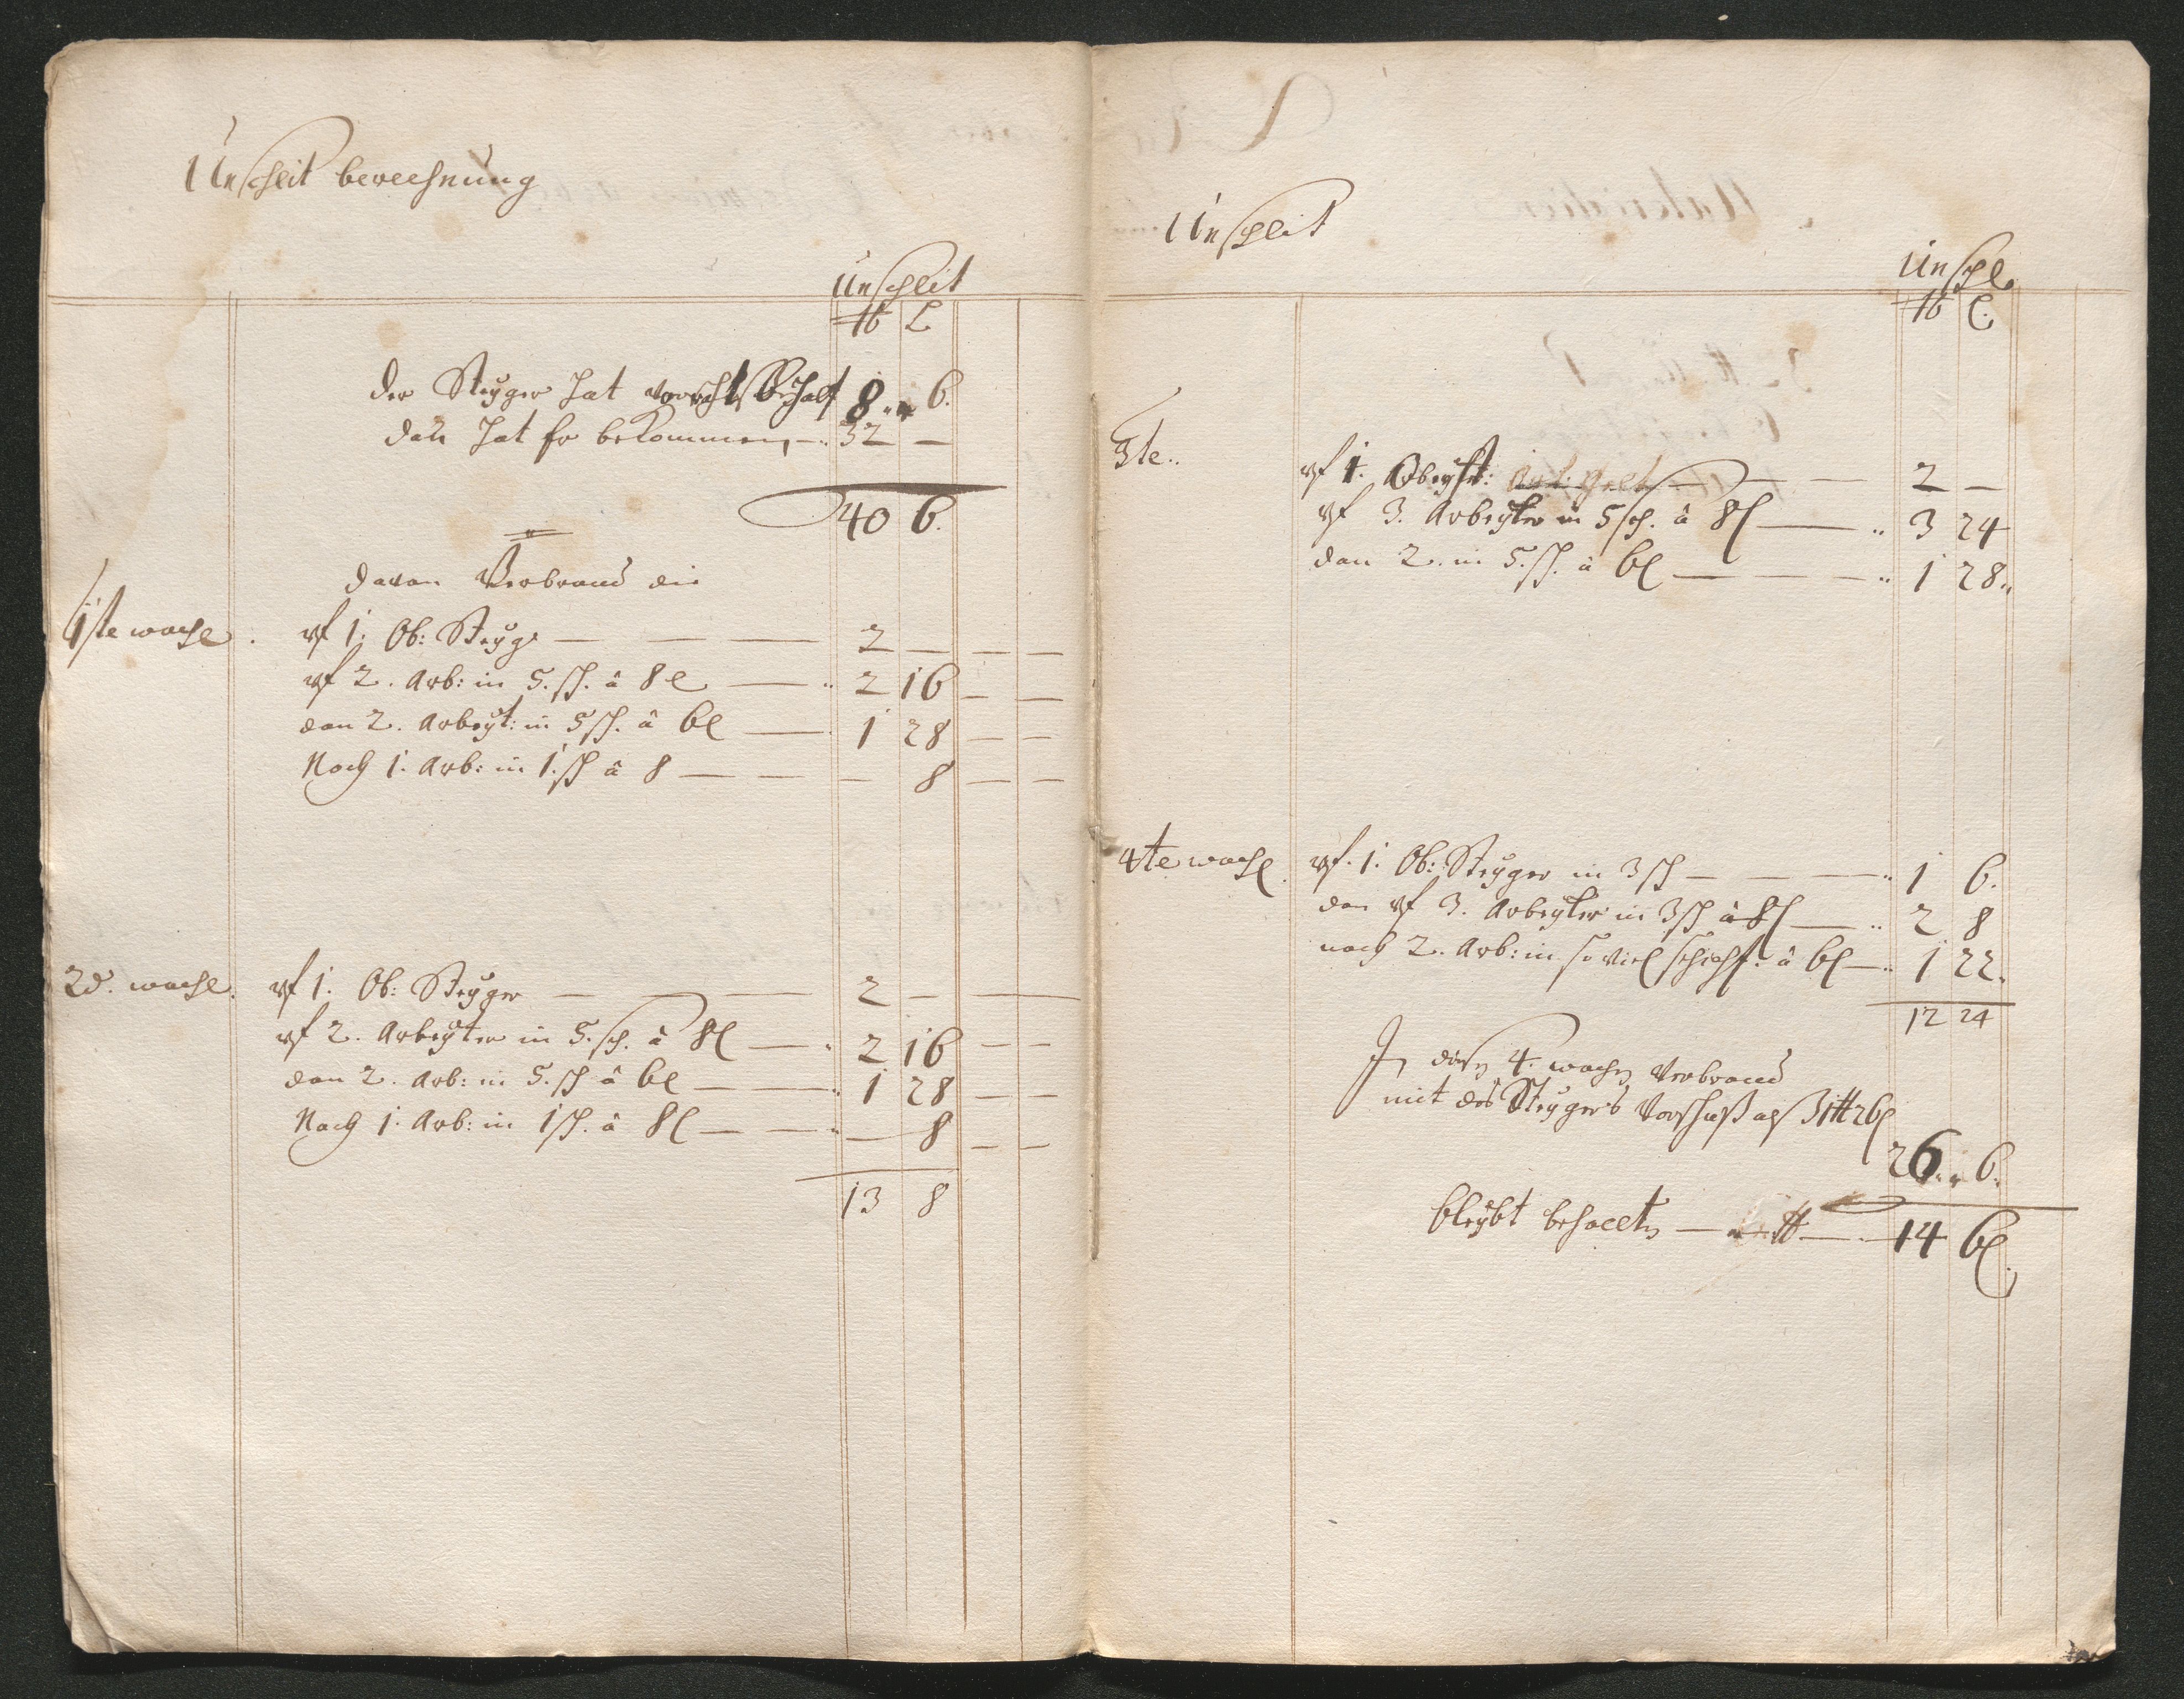 Unschlit berechnung
Unschlit
℔ L
der Steyger hat vorrths behalt 8 .. 6.
dan hat er bekommen 32 —
40 6.
davon Verbraucht die
1ste woche. vf 1. Ob: Steyge — — — 2 — — —
vf 2. Arb: in 5. sch. â 8 l — .. 2 16 — —
dan 2. Arbeyt: in 5 sch. â 6 l — 1 28 — —
Noch 1. Arb: in 1. sch â 8 — — — 8 — —
2d. woche. vf 1. Ob: Steyger — — — 2 — —
vf 2. Arbeyter in 5. sch. â 8 l — . 2 16 — —
dan 2. Arb: in 5. sch â 6 l — .. 1 28 — —
Noch 1. Arb: in 1 sch. â 8 l — — .. — 8 — —
13 8
Unschlit
Unschl.
℔ L.
3te.. vf 1. Obeyst: — — 2 —
vf 3. Arbeyter in 5 sch. â 8 l — — .. 3 24
dan 2. in 5. sch. â 6 l — — — .. 1 28..
4te woche. vf. 1. Ob: Steyger in 3 sch — — — .. 1 6.
dan vf 3. Arbeyter in 3 sch â 8 l — .. 2 8
noch 2. Arb: in so viel schicht. â 6 l — .. 1 22.
12 24
In disen 4. wochen Verbraucht
mit des Steyger's Vorschuß
26 .. 6.
bleybt behalten — ℔ — 14 6 l.